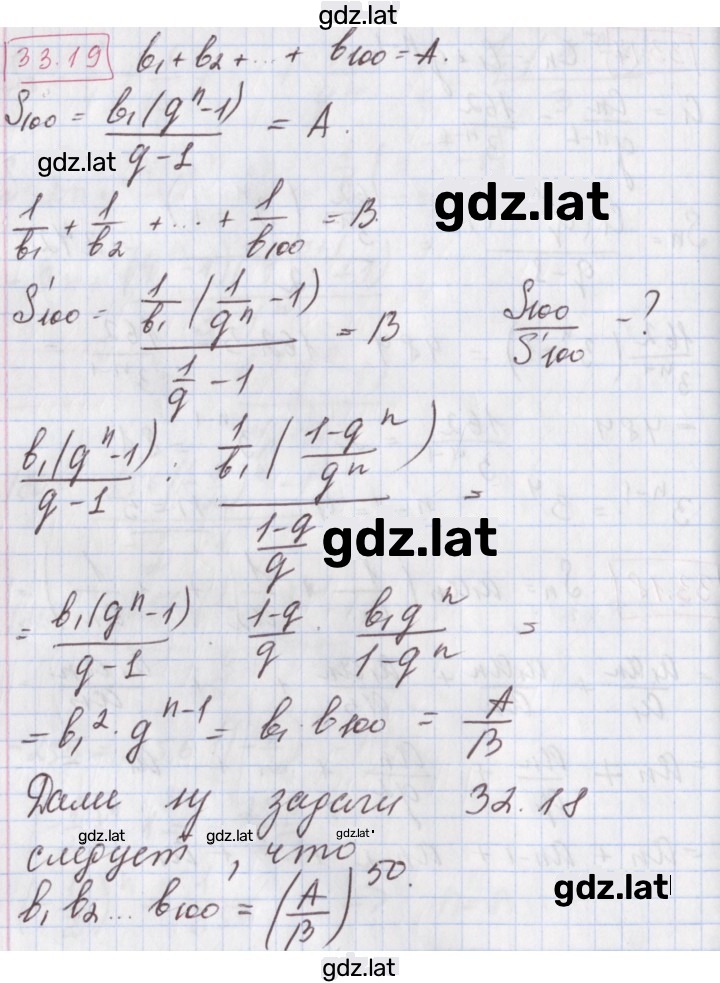 gdz.lat
33.19 b₁ + b₂ + ... + b₁₀₀ = A.
S₁₀₀ = b₁(qⁿ-1)/(q-1) = A.
gdz.lat
1/b₁ + 1/b₂ + ... + 1/b₁₀₀ = B.
gdz.lat
S'₁₀₀ = (1/b₁ (1/qⁿ - 1))/(1/q - 1) = B S₁₀₀/S'₁₀₀ - ?
b₁(qⁿ-1)/(q-1) : (1/b₁ ((1-qⁿ)/qⁿ))/((1-q)/q) =
gdz.lat
= b₁(qⁿ-1)/(q-1) · (1-q)/q · b₁qⁿ/(1-qⁿ) =
= b₁² · qⁿ⁻¹ = b₁ · b₁₀₀ = A/B
Далее из задачи 32.18
gdz.lat gdz.lat gdz.lat
следует, что
b₁ b₂ ... b₁₀₀ = (A/B)⁵⁰.
gdz.lat
gdz.lat